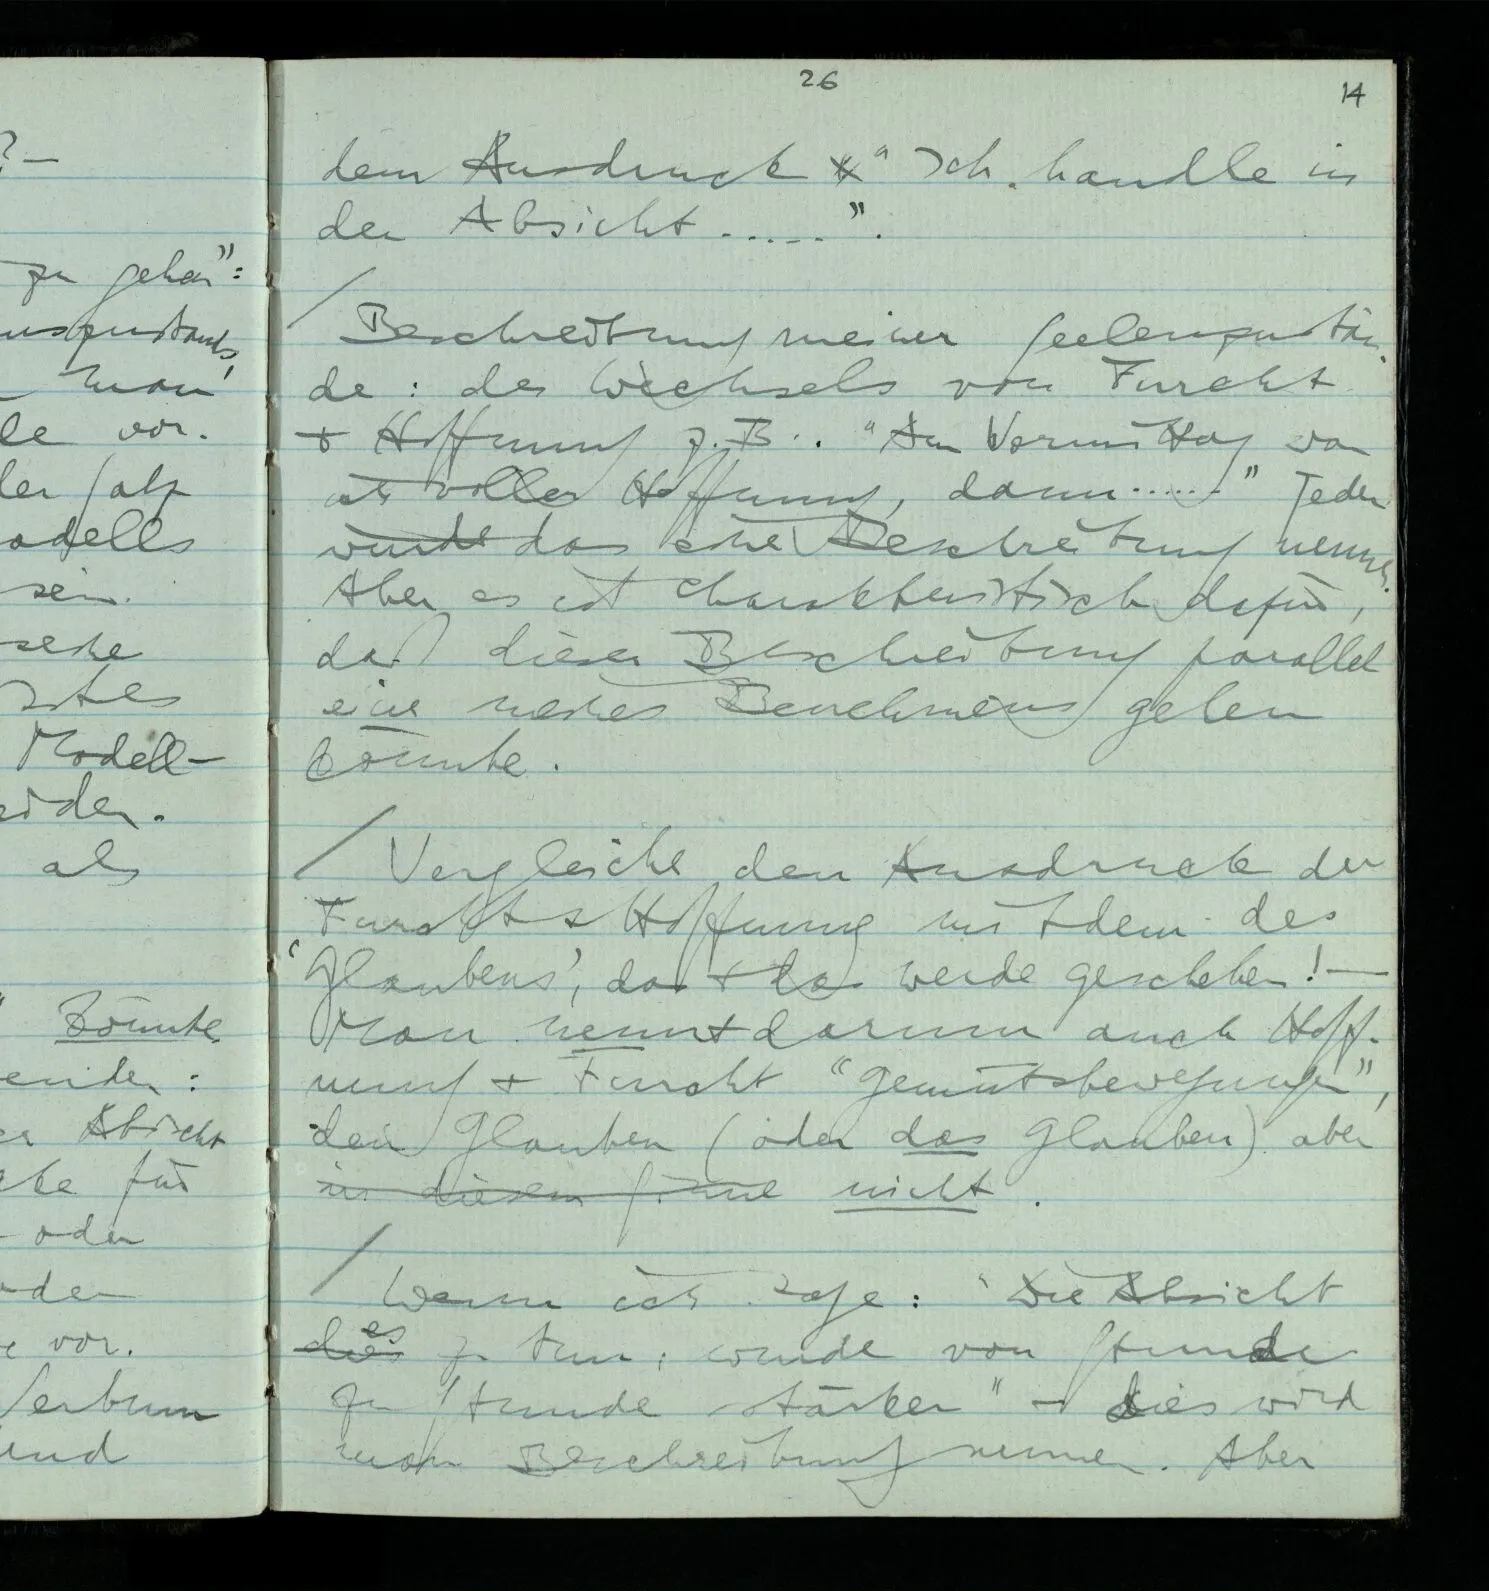 26
14
?–
zu gehen":
man
le vor.
odells
sein.
Modell–
als
könnte
Absicht
für
oder
vor.
Verbum
und
dem Ausdruck "Ich handle in
der Absicht .....".
/ Beschreibung meiner Seelenzustän-
de: des Wechsels von Furcht
+ Hoffnung z.B.. "Am Vormittag war
ich voller Hoffnung, dann....." Jeder
würde das eine Beschreibung nennen.
Aber es ist charakteristisch dafür,
daß dieser Beschreibung parallel
eine meines Benehmens gehen
könnte.
/ Vergleiche den Ausdruck der
Furcht & Hoffnung mit dem des
'Glaubens', das + das werde geschehen! –
Man nennt darum auch Hoff-
nung + Furcht "Gemütsbewegungen",
den Glauben (oder das Glauben) aber
in diesem Sinne nicht.
/ Wenn ich sage: "Die Absicht
es
dies zu tun, wurde von Stunde
zu Stunde stärker" – dies wird
man Beschreibung nennen. Aber